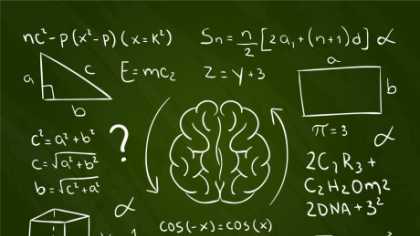 nc²-p(x²-p)(x=K²)
Sn = n/2 [2a₁+(n+1)d] α
a
c
b
E=mc₂
2=y+3
a
b
π=3
α
c²=a²+b²
c=√a²+b²
b=√c²+a²
?
2C₇R₃+
C₂H₂Om₂
2DNA+3²
α
cos(-x)=cos(x)